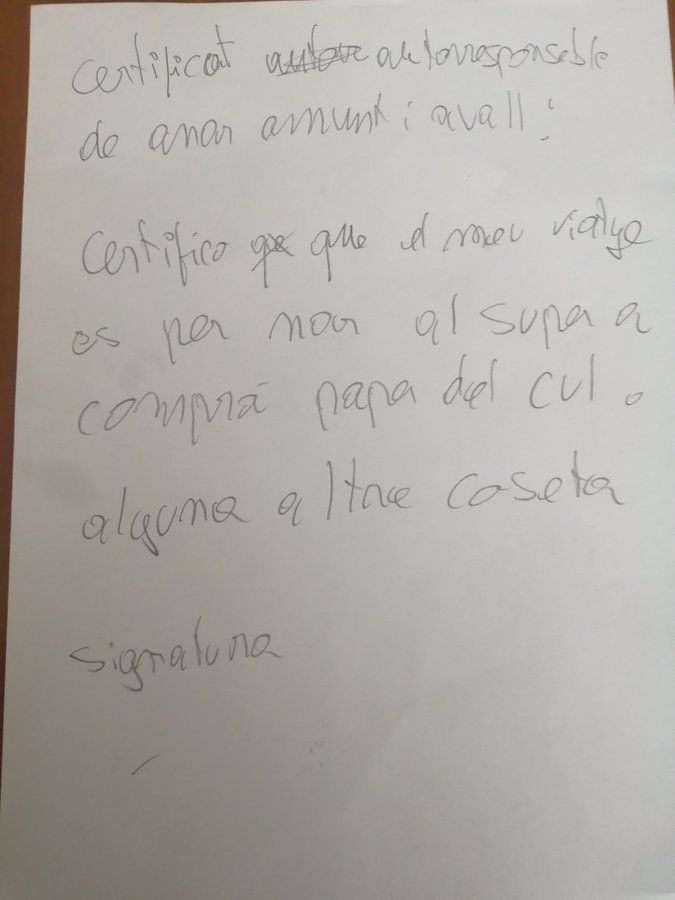 Certificat autorresponseble
de anar amunt i avall:
Certifico que el meu viatge
es per nar al supa a
comprà papa del cul o
alguna altre coseta
signatura